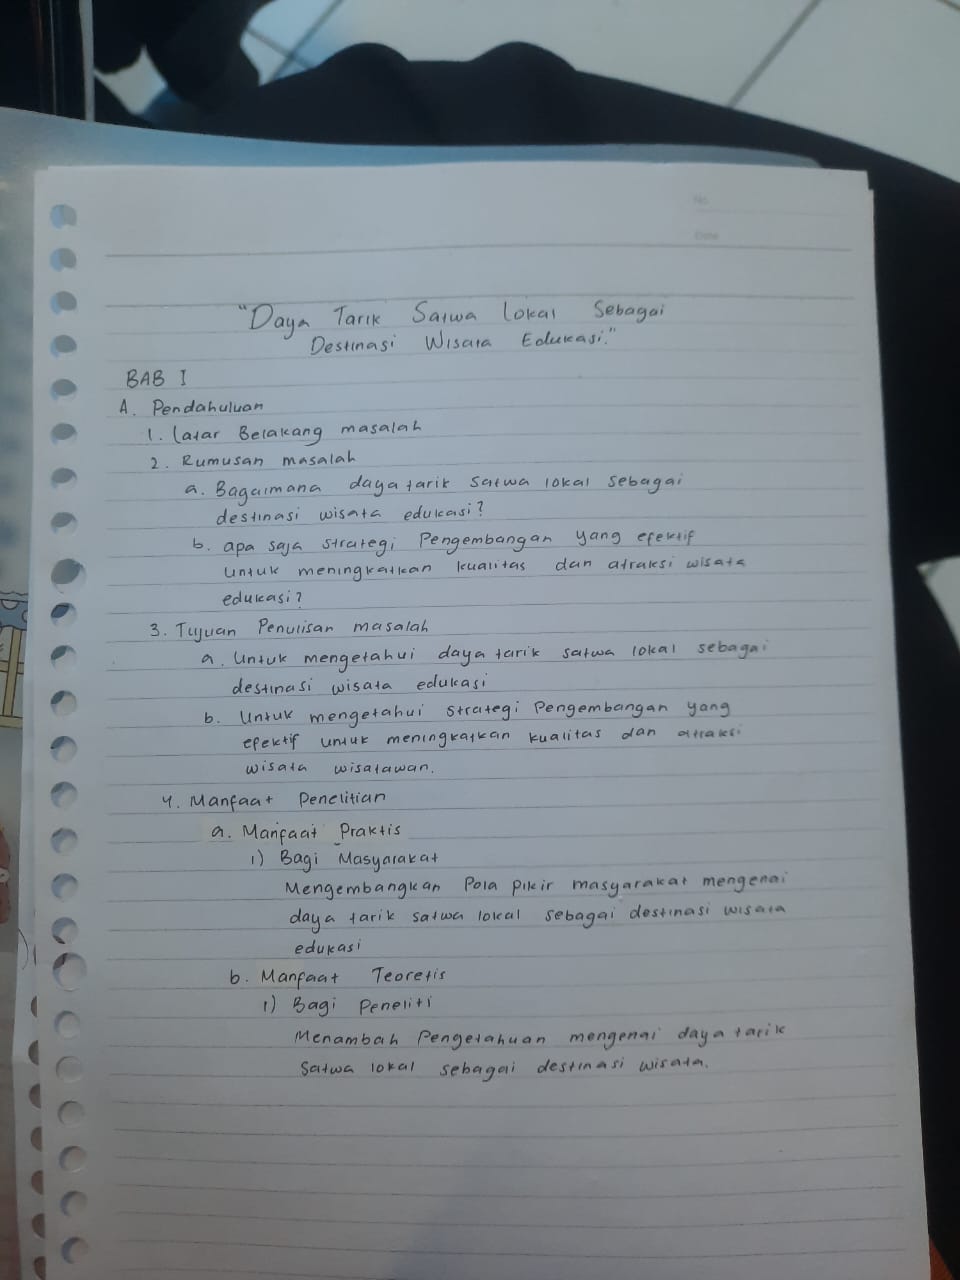 No.
Date
"Daya Tarik Satwa Lokal Sebagai
Destinasi Wisata Edukasi."
BAB I
A. Pendahuluan
1. Latar Belakang masalah
2. Rumusan masalah
a. Bagaimana daya tarik satwa lokal sebagai
destinasi wisata edukasi?
b. apa saja strategi Pengembangan yang efektif
untuk meningkatkan kualitas dan atraksi wisata
edukasi?
3. Tujuan Penulisan masalah
a. Untuk mengetahui daya tarik satwa lokal sebagai
destinasi wisata edukasi
b. Untuk mengetahui strategi Pengembangan yang
efektif untuk meningkatkan kualitas dan atraksi
wisata wisatawan.
4. Manfaat Penelitian
a. Manfaat Praktis
1) Bagi Masyarakat
Mengembangkan Pola pikir masyarakat mengenai
daya tarik satwa lokal sebagai destinasi wisata
edukasi
b. Manfaat Teoretis
1) Bagi Peneliti
Menambah Pengetahuan mengenai daya tarik
Satwa lokal sebagai destinasi wisata.